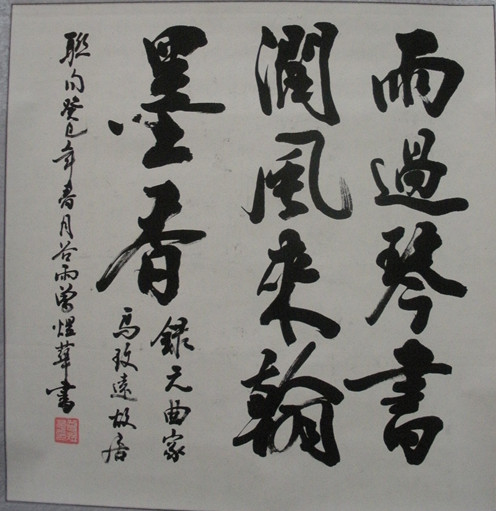 雨過琴書
潤風來翰
墨香
錄元曲家
馬致遠故居
聯句癸巳年春月谷雨曾煜華書